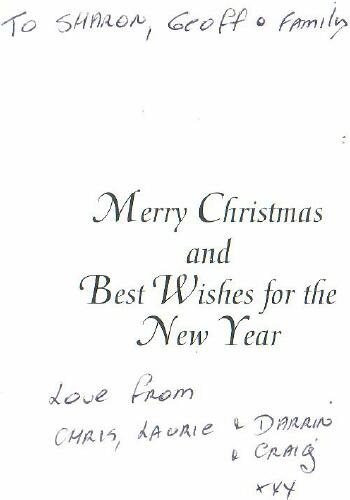 To SHARON, Geoff & Family
Merry Christmas
and
Best Wishes for the
New Year
Love From
CHRIS, LAURIE & DARRIN
& CRAIG
xxx